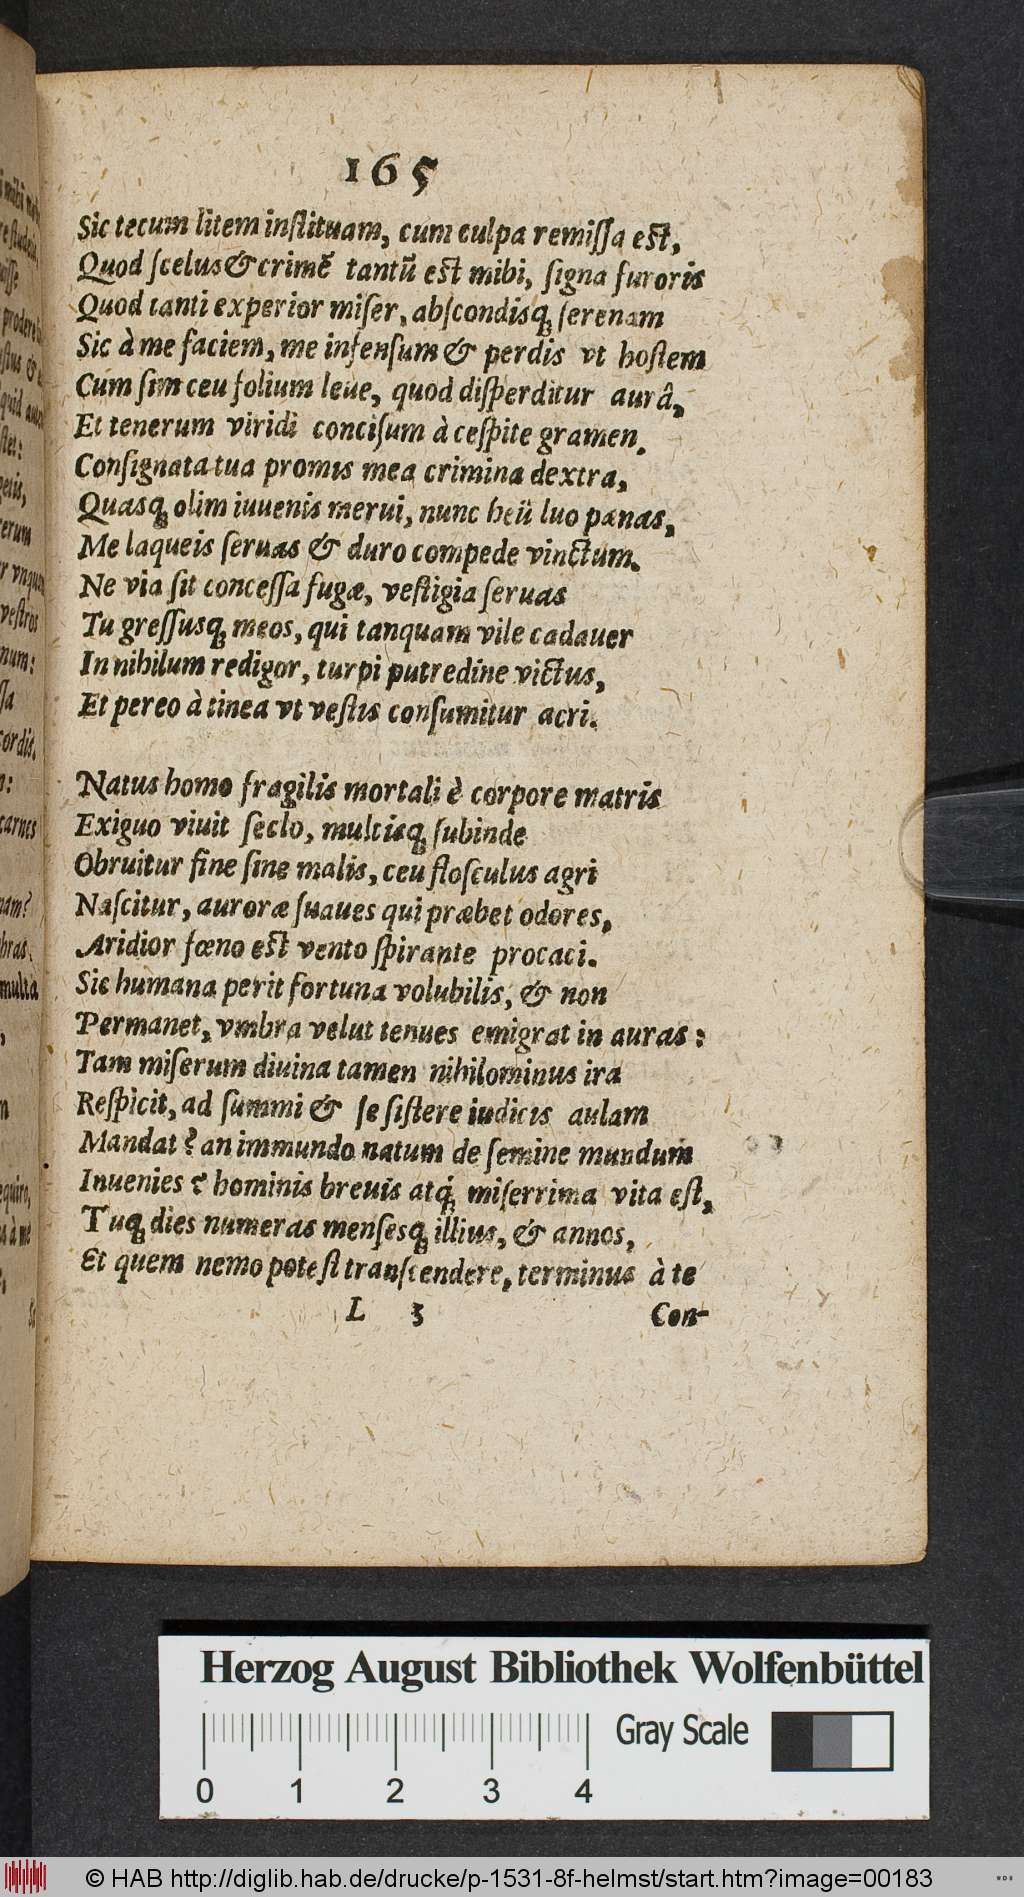 165
Sic tecum litem inſtituam, cum culpa remiſſa eſt,
Quod ſcelus & crimē tantū eſt mihi, ſigna furoris
Quod tanti experior miſer, abſcondisq; ſerenam
Sic à me faciem, me infenſum & perdis vt hoſtem
Cum ſim ceu folium leue, quod diſperditur aurâ,
Et tenerum viridi conciſum à ceſpite gramen.
Conſignata tua promis mea crimina dextra,
Quasq; olim iuuenis merui, nunc heü luo pænas,
Me laqueis ſeruas & duro compede vinctum.
Ne via ſit conceſſa fugæ, veſtigia ſeruas
Tu greſſusq; meos, qui tanquam vile cadauer
In nihilum redigor, turpi putredine victus,
Et pereo à tinea vt veſtis conſumitur acri.
Natus homo fragilis mortali è corpore matris
Exiguo viuit ſeclo, multisq; ſubinde
Obruitur fine ſine malis, ceu floſculus agri
Naſcitur, auroræ ſuaues qui præbet odores,
Aridior fœno eſt vento ſpirante procaci.
Sic humana perit fortuna volubilis, & non
Permanet, vmbra velut tenues emigrat in auras:
Tam miſerum diuina tamen nihilominus ira
Reſpicit, ad ſummi & ſe ſiſtere iudicis aulam
Mandat? an immundo natum de ſemine mundum
Inuenies? hominis breuis atq; miſerrima vita eſt,
Tuq; dies numeras menſesq; illius, & annos,
Et quem nemo poteſt tranſcendere, terminus à te
L 3 Con-
Herzog August Bibliothek Wolfenbüttel
Gray Scale
0 1 2 3 4
© HAB http://diglib.hab.de/drucke/p-1531-8f-helmst/start.htm?image=00183